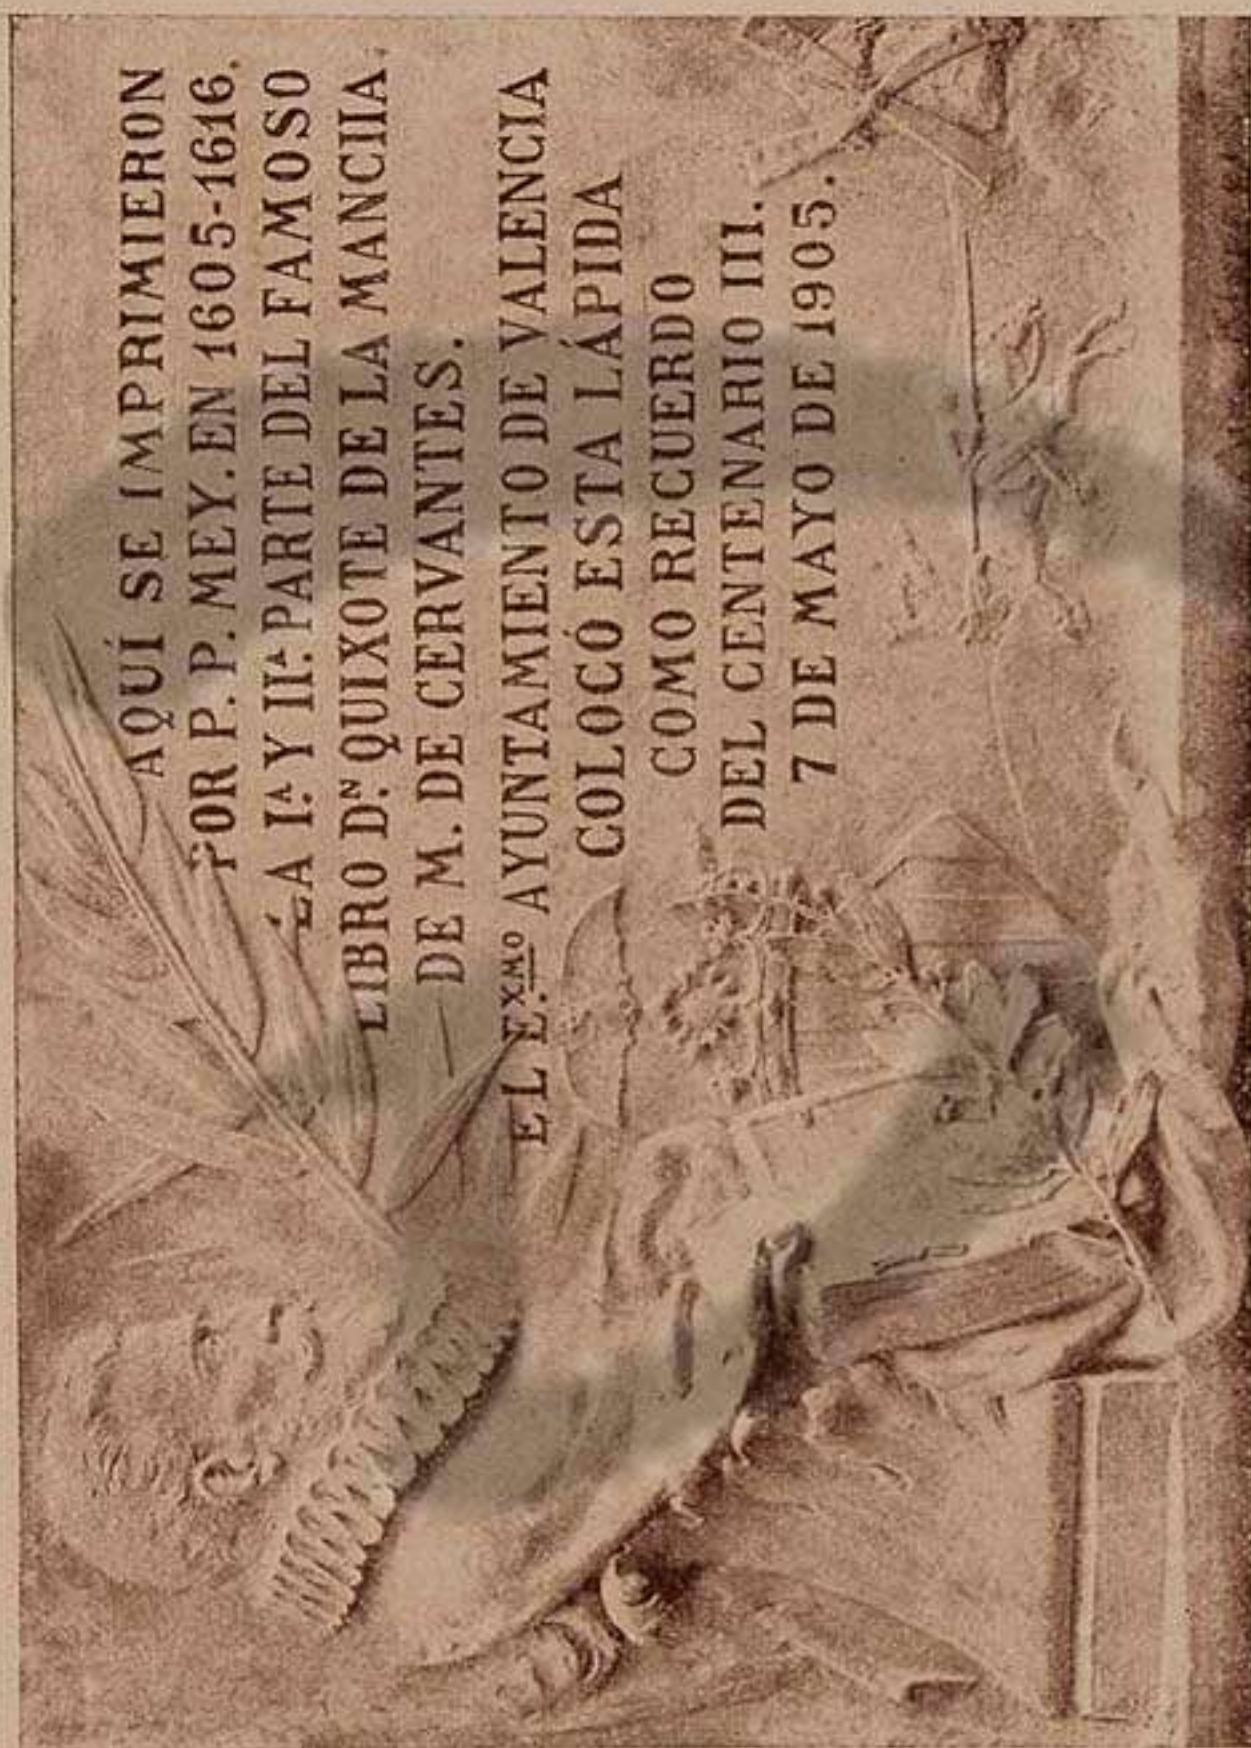 AQUÍ SE IMPRIMIERON
POR P. P. MEY. EN 1605-1616.
LA Iª. Y IIª. PARTE DEL FAMOSO
LIBRO Dⁿ. QUIXOTE DE LA MANCHA.
DE M. DE CERVANTES.
EL Exᴹᴼ. AYUNTAMIENTO DE VALENCIA
COLOCÓ ESTA LÁPIDA
COMO RECUERDO
DEL CENTENARIO III.
7 DE MAYO DE 1905.